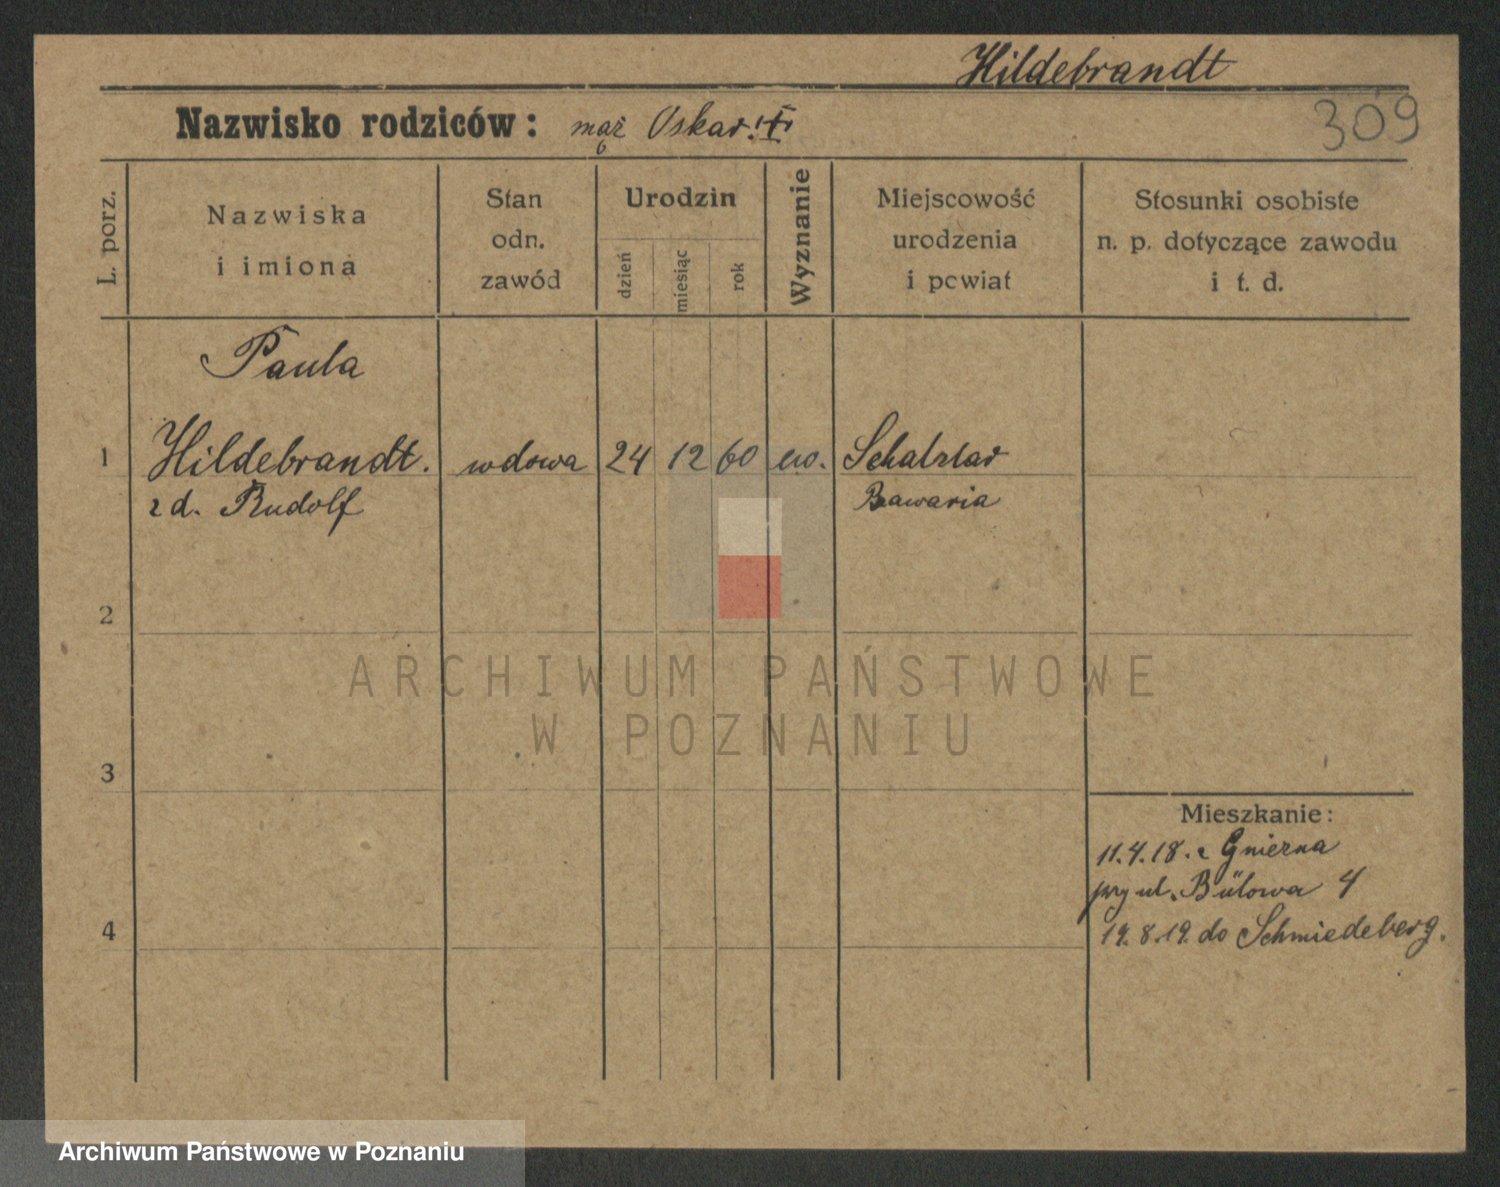 Hildebrandt
309
Nazwisko rodziców: mąż Oskar
L. porz.
Nazwiska
i imiona
Stan
odn.
zawód
Urodzin
dzień
miesiąc
rok
Wyznanie
Miejscowość
urodzenia
i powiat
Stosunki osobiste
n. p. dotyczące zawodu
i t. d.
Paula
1 Hildebrandt. wdowa 24 12 60 ew.
z d. Rudolf Bawaria
2
ARCHIWUM PAŃSTWOWE
W POZNANIU
3
Mieszkanie:
11.4.18. z Gniezna
przy ul. Bülowa 4
4
19.8.19. do Schmiedeberg.
Archiwum Państwowe w Poznaniu